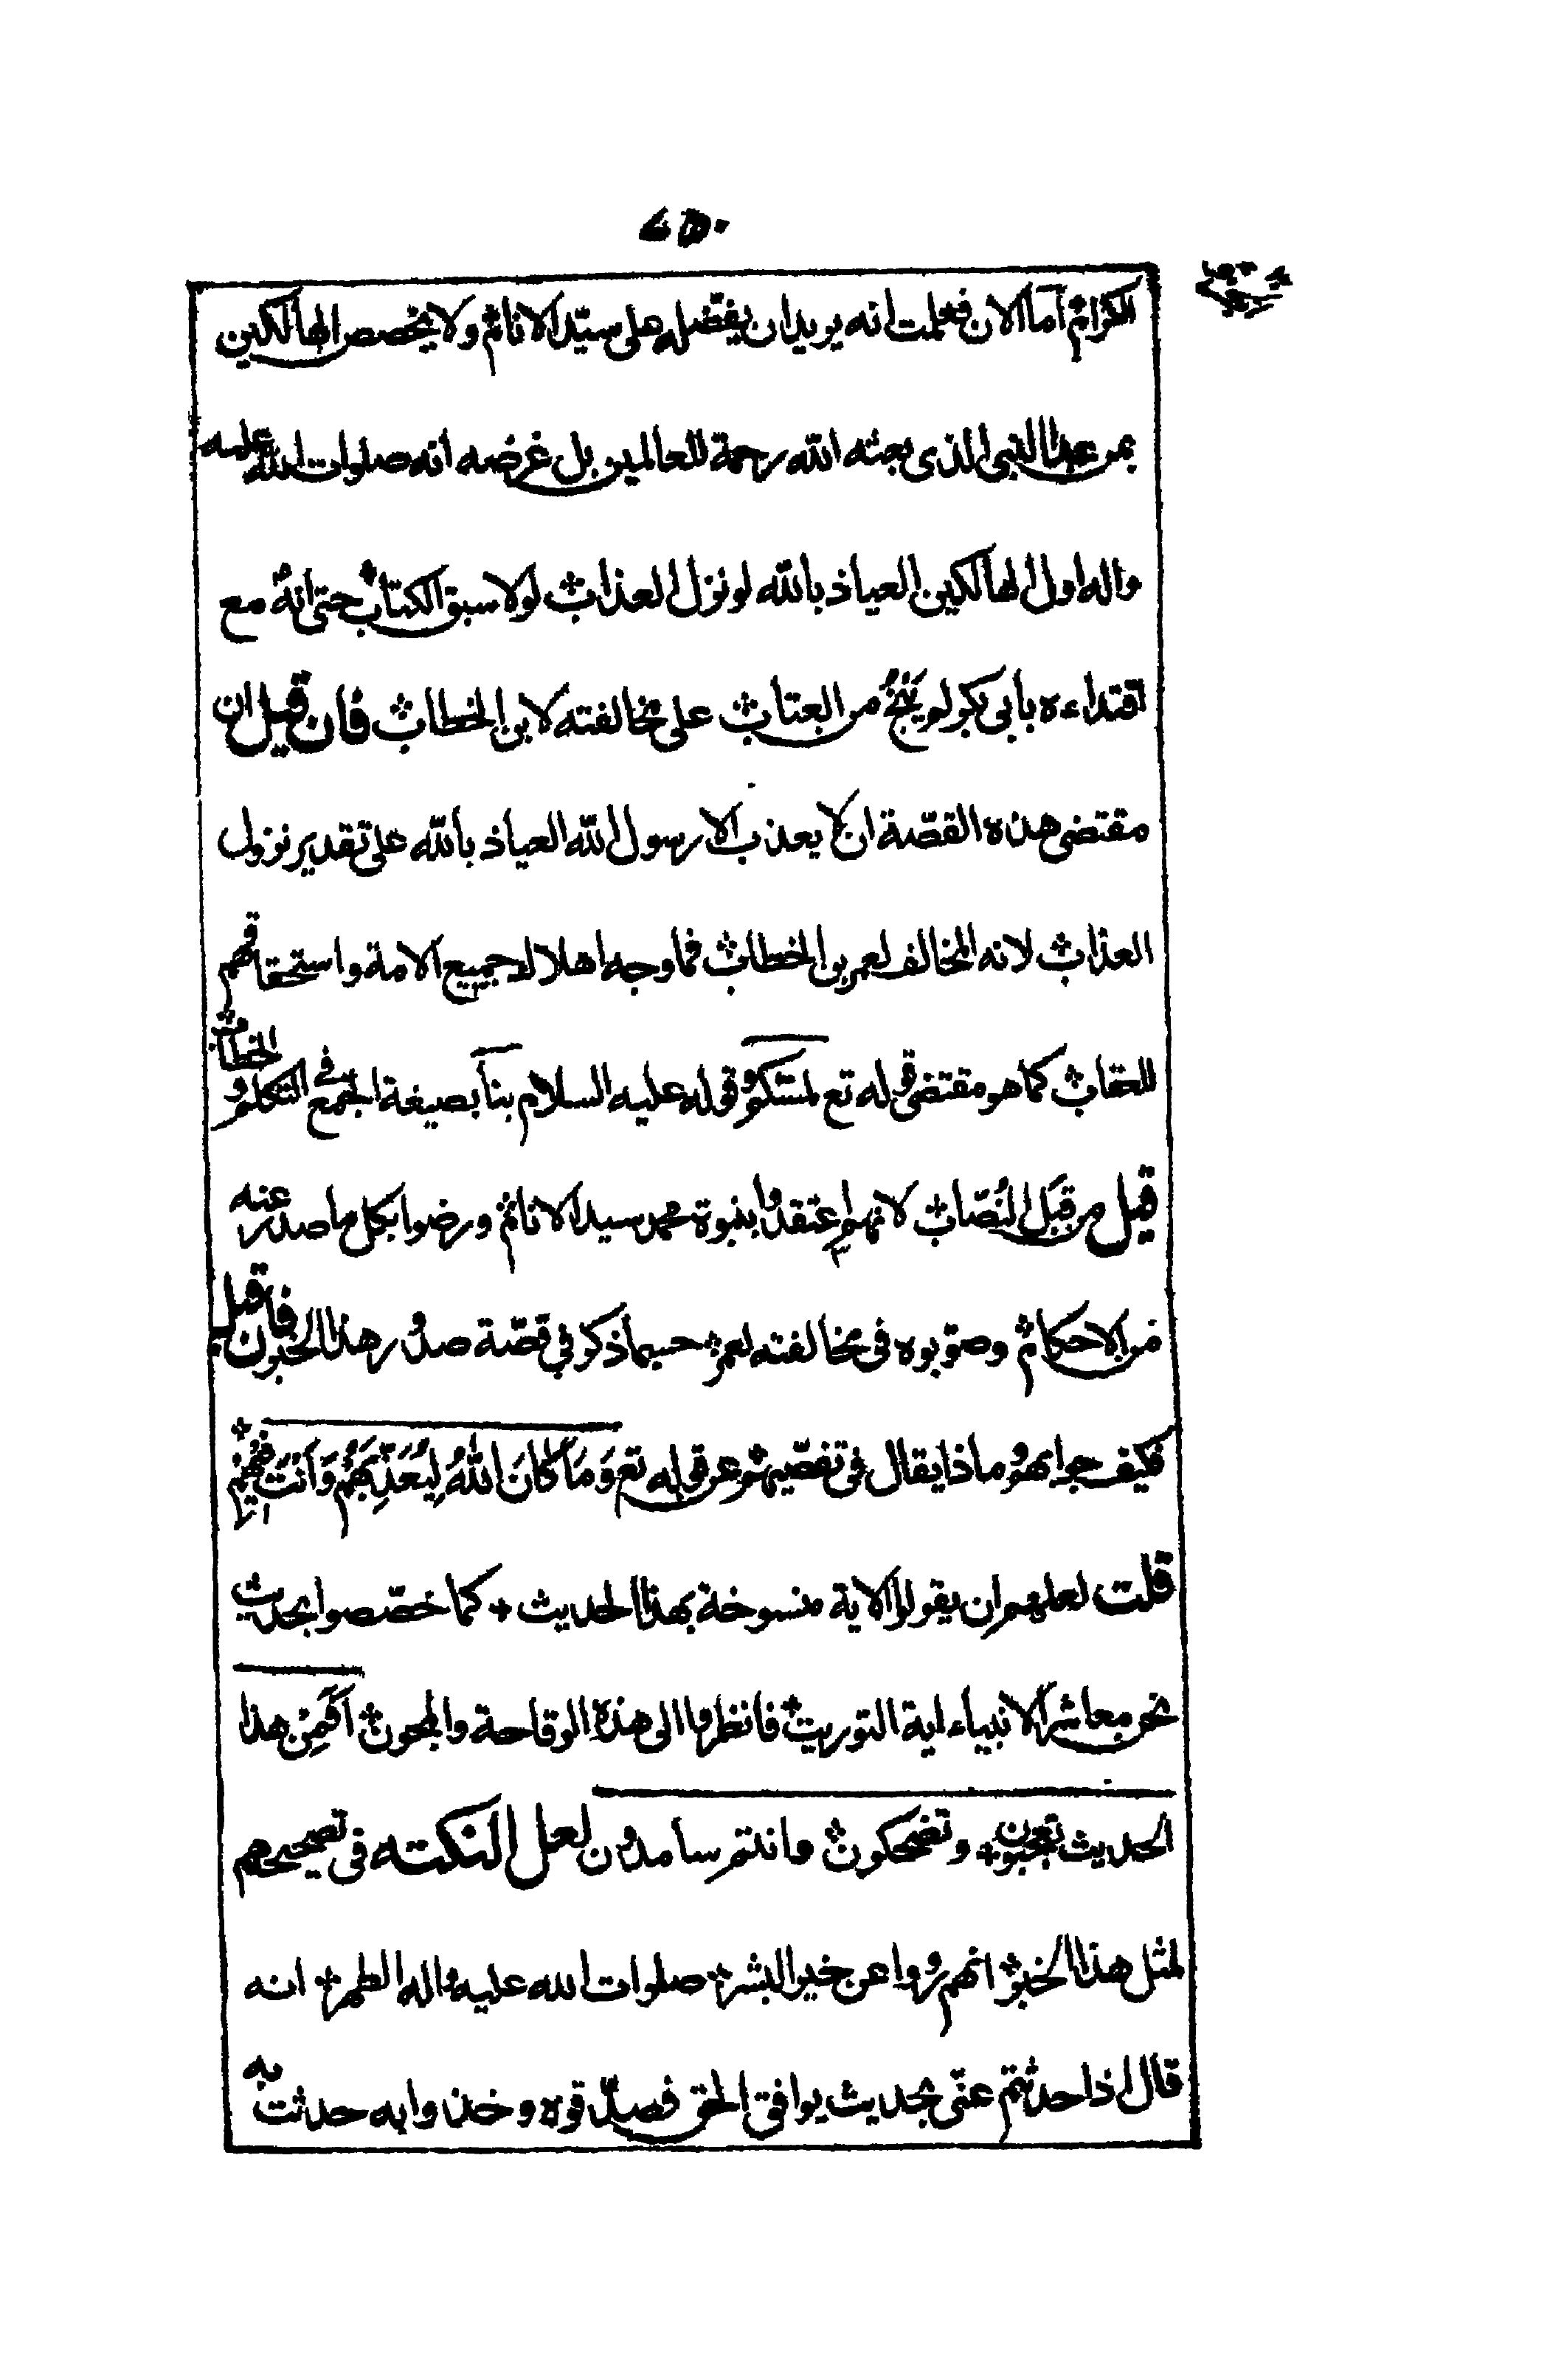 الكرام أما الان فعلمت انه يريد ان يفضله على سيّد الانام ولا يخصص الهالكين
بمن عدا النبى الذى بعثه الله رحمة للعالمين بل غرضه انه صلوات الله عليه
واله اول الهالكين العياذ بالله لو نزل العذاب لولا سبق الكتاب حتى انه مع
اقتداءه بأبى بكر لم ينج من العتاب على مخالفته لابن الخطاب فان قيل ان
مقتضى هذه القصّة ان لا يعذب الا رسول الله العياذ بالله على تقدير نزول
العذاب لانه المخالف لعمر بن الخطاب فما وجه اهلاك جميع الامة واستحقاقهم
للعقاب كما هو مقتضى قوله تع لمسّكم وقوله عليه السلام بنا بصيغة الجمع فى التكلم والخطاب
قيل من قبل النُصّاب لانهم اعتقدوا بنبوة محمد سيد الانام ورضوا بكل ما صدر عنه
من الاحكام وصوّبوه فى مخالفته لعمر حسبما ذكر في قصّة صدور هذا الخبر فان قيل
فكيف جوابهم وماذا يقال فى تفصّيهم عن قوله تع وَمَا كَانَ اللهُ لِيُعَذِّبَهُمْ وَأَنْتَ فِيْهِمْ
قلت لعلهم ان يقولوا الاية منسوخة بهذا الحديث كما خصّصوا بحديث
نحن معاشر الانبياء اية التوريث فانظروا الى هذه الوقاحة والمجون أفَمِنْ هذا
الحديث تعجبون وتضحكون وانتم سامدون لعل النكته فى تصحيحهم
لمثل هذا الخبر انهم رووا عن خير البشر صلوات الله عليه واله الطهر انه
قال اذا حدثتم عنّى بحديث يوافق الحق فصدّقوه وخذوا به حدثت به